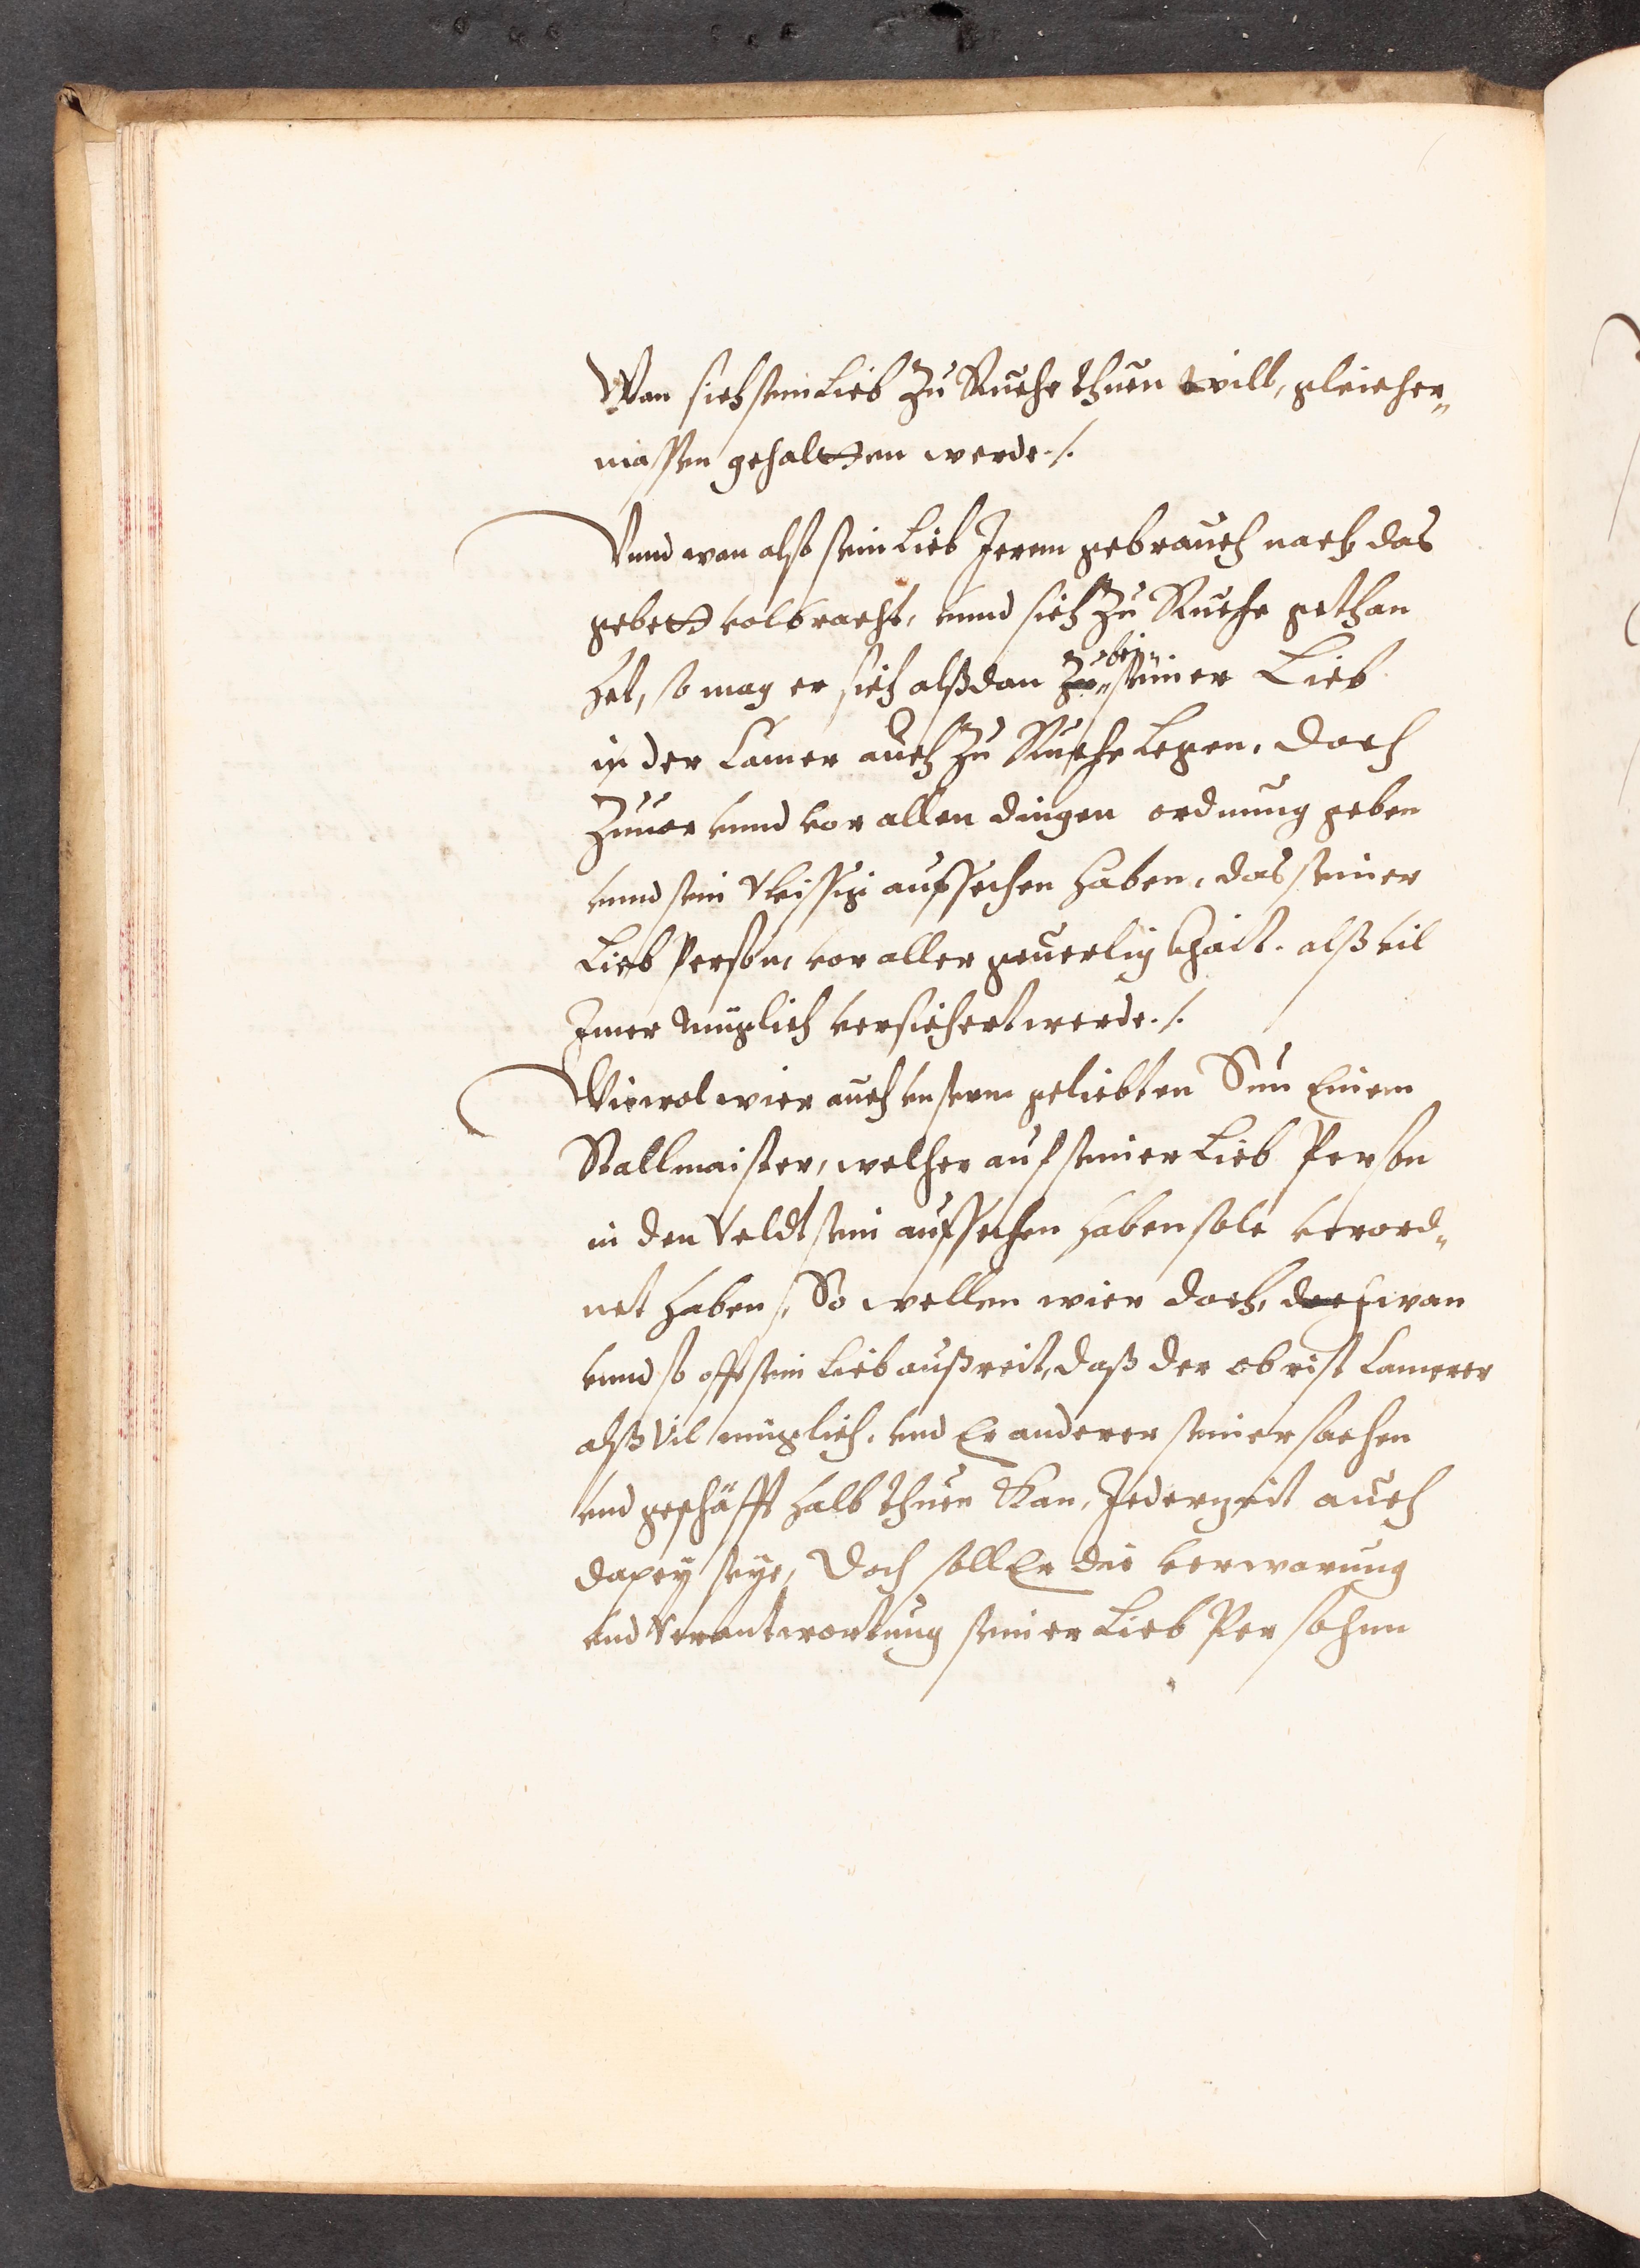 Wan sich sein Lieb Zu Rueche thuen will, gleicher„
massen gehaltten werde ./.
Vnnd wan also sein Lieb Jerem gebrauch nach, das
gebett volbracht, vnnd sich Zu Rueche gethan
het, so mag er sich alßdan bej seiner Lieb
in der Camer auch Zu Rueche Legen, doch
Zuuor vnnd vor allen dingen ordnung geben
vnnd sein Vleissigs aufsechen haben, das seiner
Lieb Person, vor aller geuerligkhait. alß vil
Jmer müglich versichert werde ./.
Wiewol wier auch vnserm geliebten Sun Einem
Stallmaister, welher auf seiner Lieb Person
in den Veldt sein aufsechen haben sole verord„
net haben /. So wellen wier doch, wan
vnnd so offt sein Lieb außreit, daß der obrist Camerer
alß Vil müglich, vnd Er anderer seiner sachen
vnd geschäfft halb thuen Khan, Jederzeit auch
dapey seye, Doch soll Er die verwarung
vnd Verantwortung seiner Lieb Persohnn